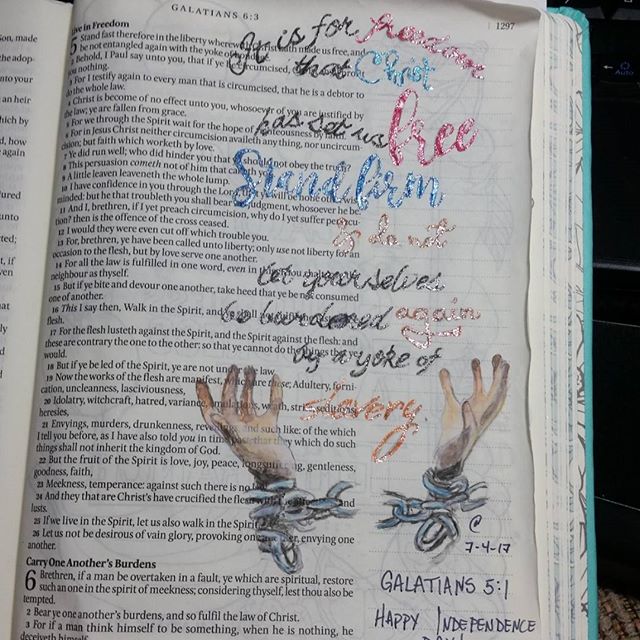 GALATIANS 6:3
1297
Live in Freedom
5 Stand fast therefore in the liberty wherewith Christ hath made us free, and
be not entangled again with the yoke of
2 Behold, I Paul say unto you, that if ye be circumcised,
you nothing.
3 For I testify again to every man that is circumcised, that he is a debtor to
do the whole law.
4 Christ is become of no effect unto you, whosoever of you are justified by
the law; ye are fallen from grace.
5 For we through the Spirit wait for the hope of righteousness by faith.
6 For in Jesus Christ neither circumcision availeth any thing, nor uncircum-
cision; but faith which worketh by love.
7 Ye did run well; who did hinder you that ye should not obey the truth?
8 This persuasion cometh not of him that calleth you.
9 A little leaven leaveneth the whole lump.
10 I have confidence in you through the Lord, that ye will be none
minded: but he that troubleth you shall bear his judgment, whosoever he be.
11 And I, brethren, if I yet preach circumcision, why do I yet suffer persecu-
tion? then is the offence of the cross ceased.
12 I would they were even cut off which trouble you.
13 For, brethren, ye have been called unto liberty; only use not liberty for an
occasion to the flesh, but by love serve one another.
14 For all the law is fulfilled in one word, even in
neighbour as thyself.
15 But if ye bite and devour one another, take heed that ye be not consumed
one of another.
16 This I say then, Walk in the Spirit, and
flesh.
17 For the flesh lusteth against the Spirit, and the Spirit against the flesh: and
these are contrary the one to the other: so that ye cannot do the things that ye
would.
18 But if ye be led of the Spirit, ye are not under the law.
19 Now the works of the flesh are manifest, which are these; Adultery, forni-
cation, uncleanness, lasciviousness,
20 Idolatry, witchcraft, hatred, variance, emulations, wrath, strife, seditions,
heresies,
21 Envyings, murders, drunkenness, revellings, and such like: of the which
I tell you before, as I have also told you in time past, that they which do such
things shall not inherit the kingdom of God.
22 But the fruit of the Spirit is love, joy, peace, longsuffering, gentleness,
goodness, faith,
23 Meekness, temperance: against such there is no law.
24 And they that are Christ's have crucified the flesh with the affections and
lusts.
25 If we live in the Spirit, let us also walk in the Spirit.
26 Let us not be desirous of vain glory, provoking one another, envying one
another.
Carry One Another's Burdens
6 Brethren, if a man be overtaken in a fault, ye which are spiritual, restore
such an one in the spirit of meekness; considering thyself, lest thou also be
tempted.
2 Bear ye one another's burdens, and so fulfil the law of Christ.
3 For if a man think himself to be something, when he is nothing, he
deceiveth himself.
It is for freedom
that Christ
has set us free
Stand firm
& do not
let yourselves
be burdened again
by a yoke of
slavery.
7-4-17
GALATIANS 5:1
HAPPY INDEPENDENCE
DAY!
Auto